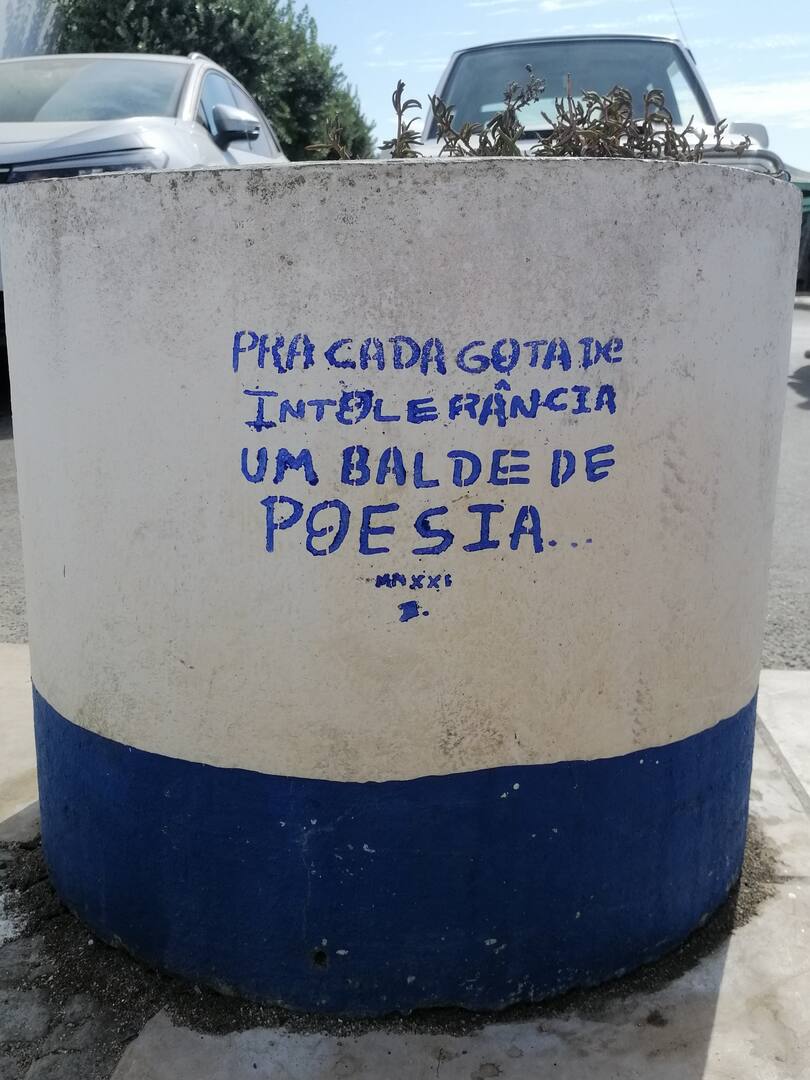 PRA CADA GOTA DE
INTOLERÂNCIA
UM BALDE DE
POESIA...
MMXXI